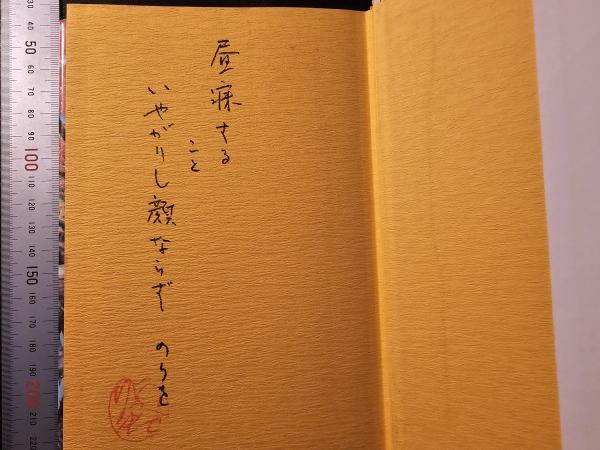 昼寐する
こと
いやがりし顔ならず のらを
30
40
50
60
70
80
90
100
110
120
130
140
150
160
170
180
190
200
210
220